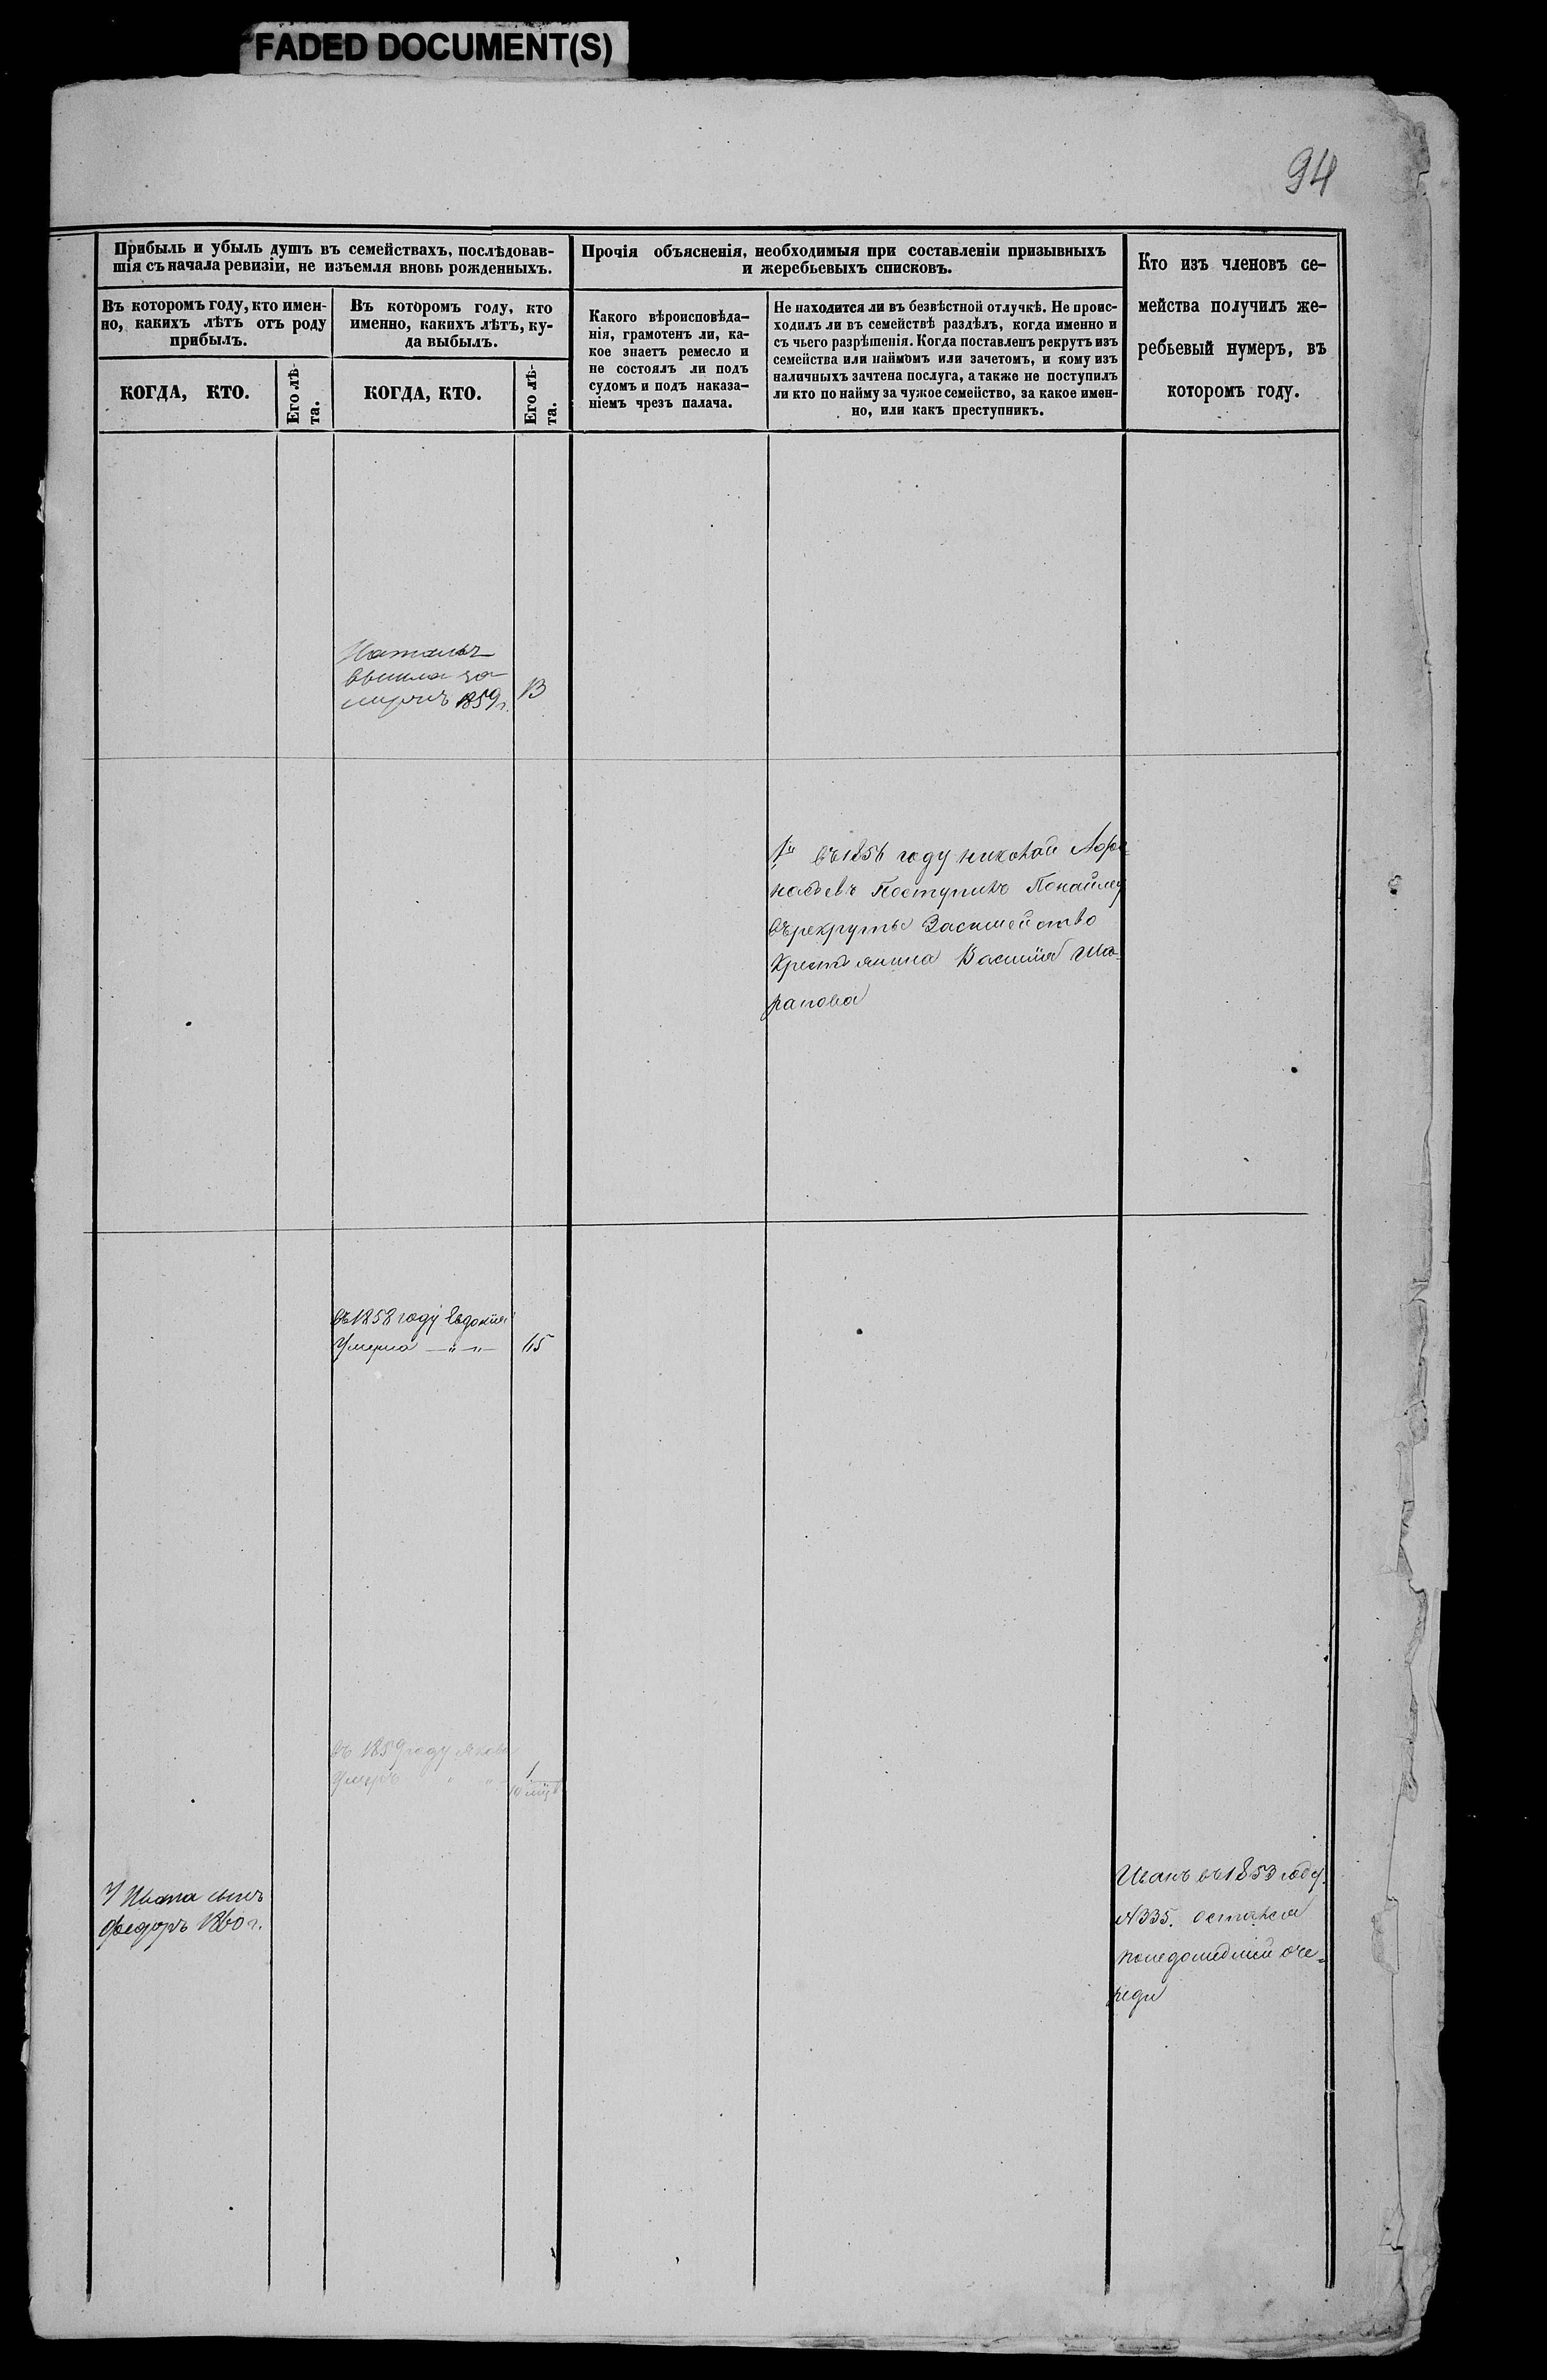 FADED DOCUMENT(S)
94
Прибыль и убыль душъ въ семействахъ, послѣдовав-
шія съ начала ревизіи, не изъемля вновь рожденныхъ.
Въ которомъ году, кто имен-
но, какихъ лѣтъ отъ роду
прибылъ.
Въ которомъ году, кто
именно, какихъ лѣтъ, ку-
да выбылъ.
КОГДА, КТО.
Его лѣ-
та.
КОГДА, КТО.
Его лѣ-
та.
Прочія объясненія, необходимыя при составленіи призывныхъ
и жеребьевыхъ списковъ.
Какого вѣроисповѣда-
нія, грамотенъ ли, ка-
кое знаетъ ремесло и
не состоялъ ли подъ
судомъ и подъ наказа-
ніемъ чрезъ палача.
Не находится ли въ безвѣстной отлучкѣ. Не проис-
ходилъ ли въ семействѣ раздѣлъ, когда именно и
съ чьего разрѣшенія. Когда поставленъ рекрутъ изъ
семейства или наймомъ или зачетомъ, и кому изъ
наличныхъ зачтена послуга, а также не поступилъ
ли кто по найму за чужое семейство, за какое имен-
но, или какъ преступникъ.
Кто изъ членовъ се-
мейства получилъ же-
ребьевый нумеръ, въ
которомъ году.
Наталья
вышла за
мужъ 1859 г.
въ году николай Афа-
насьевъ Поступилъ Понайму
Върекруты Засимейство
Крестьянина Василія Ша-
рапова
въ 1858 году Евдокия
Умерла —„—„—
въ 1859 году Яковъ
Умеръ „ „
1
10 мѣс
У Ивана сынъ
Федоръ 1860 г.
Иванъ въ 1853 году.
№335. остался
понедошедшей оче-
реди